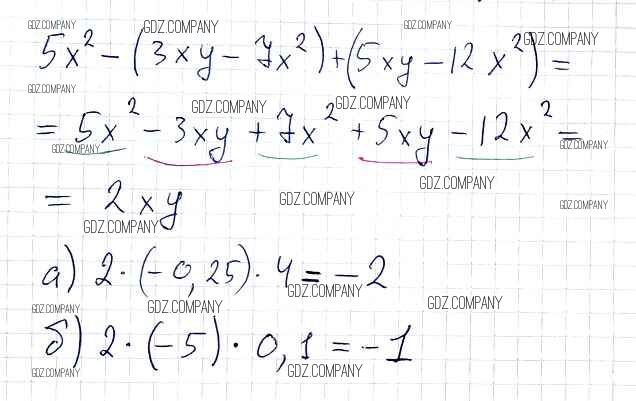 GDZ.COMPANY GDZ.COMPANY GDZ.COMPANY GDZ.COMPANY
5x² − (3xy − 7x²) + (5xy − 12x²) =
GDZ.COMPANY GDZ.COMPANY GDZ.COMPANY
= 5x² − 3xy + 7x² + 5xy − 12x² =
GDZ.COMPANY GDZ.COMPANY
= 2xy
GDZ.COMPANY GDZ.COMPANY GDZ.COMPANY GDZ.COMPANY
а) 2·(−0,25)·4 = −2
GDZ.COMPANY GDZ.COMPANY GDZ.COMPANY GDZ.COMPANY
б) 2·(−5)·0,1 = −1
GDZ.COMPANY GDZ.COMPANY